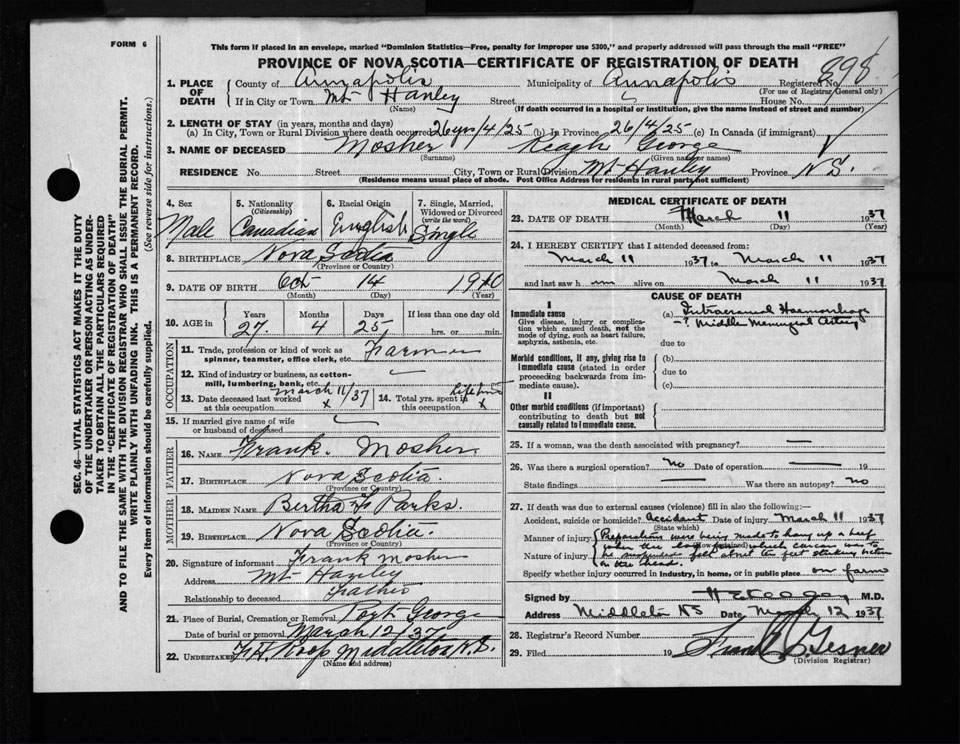 FORM 6
This form if placed in an envelope, marked "Dominion Statistics—Free, penalty for improper use $300," and properly addressed will pass through the mail "FREE"
PROVINCE OF NOVA SCOTIA—CERTIFICATE OF REGISTRATION OF DEATH
1. PLACE OF DEATH
County of Annapolis Municipality of Annapolis Registered No. 898
(For use of Registrar General only)
If in City or Town Mt Hanley Street House No.
(Name) (If death occurred in a hospital or institution, give the name instead of street and number)
2. LENGTH OF STAY (in years, months and days)
(a) In City, Town or Rural Division where death occurred 26yrs/4/25 (b) In Province 26/4/25 (c) In Canada (if immigrant)
3. NAME OF DECEASED Mosher George
(Surname) (Given name or names)
RESIDENCE No. Street City, Town or Rural Division Mt Hanley Province N.S.
(Residence means usual place of abode. Post Office Address for residents in rural parts not sufficient)
4. Sex Male
5. Nationality (Citizenship) Canadian
6. Racial Origin English
7. Single, Married, Widowed or Divorced (write the word) Single
8. BIRTHPLACE Nova Scotia
(Province or Country)
9. DATE OF BIRTH Oct 14 1910
(Month) (Day) (Year)
10. AGE in Years Months Days If less than one day old
27 4 25 hrs. or min.
OCCUPATION
11. Trade, profession or kind of work as spinner, teamster, office clerk, etc. Farmer
12. Kind of industry or business, as cotton-mill, lumbering, bank, etc.
13. Date deceased last worked at this occupation March 11/37 x
14. Total yrs. spent in this occupation Life time x
15. If married give name of wife or husband of deceased
FATHER
16. NAME Frank Mosher
17. BIRTHPLACE Nova Scotia
(Province or Country)
MOTHER
18. MAIDEN NAME Bertha Parks.
19. BIRTHPLACE Nova Scotia.
(Province or Country)
20. Signature of informant Frank Mosher
Address Mt Hanley
Relationship to deceased Father
21. Place of Burial, Cremation or Removal Port George
Date of burial or removal March 12/37
22. UNDERTAKER Roop Middleton N.S.
(Name and address)
MEDICAL CERTIFICATE OF DEATH
23. DATE OF DEATH March 11 1937
(Month) (Day) (Year)
24. I HEREBY CERTIFY that I attended deceased from:
March 11 1937 to March 11 1937
and last saw him alive on March 11 1937
CAUSE OF DEATH
I
Immediate cause
Give disease, injury or complication which caused death, not the mode of dying, such as heart failure, asphyxia, asthenia, etc.
(a) Intracranial Haemorrhage
? Middle Meningeal Artery
due to
Morbid conditions, if any, giving rise to immediate cause (stated in order proceeding backwards from immediate cause).
(b)
due to
(c)
II
Other morbid conditions (if important) contributing to death but not causally related to immediate cause.
25. If a woman, was the death associated with pregnancy?
26. Was there a surgical operation? no Date of operation 19
State findings Was there an autopsy? no
27. If death was due to external causes (violence) fill in also the following:—
Accident, suicide or homicide? Accident Date of injury March 11 1937
(State which)
Manner of injury Preparations were being made to hang up a beef
Nature of injury which carcas was to
be suspended fell about ten feet striking
on the head.
Specify whether injury occurred in industry, in home, or in public place on farm
Signed by M.D.
Address Middleton NS Date March 12 1937
28. Registrar's Record Number
29. Filed 19
(Division Registrar)
SEC. 46—VITAL STATISTICS ACT MAKES IT THE DUTY
OF THE UNDERTAKER OR PERSON ACTING AS UNDERTAKER
TO OBTAIN ALL THE PARTICULARS REQUIRED
IN THE "CERTIFICATE OF REGISTRATION OF DEATH"
AND TO FILE THE SAME WITH THE DIVISION REGISTRAR WHO SHALL ISSUE THE BURIAL PERMIT.
WRITE PLAINLY WITH UNFADING INK. THIS IS A PERMANENT RECORD.
Every item of information should be carefully supplied. (See reverse side for instructions.)